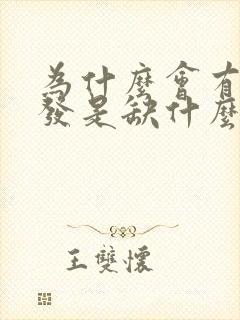 為什麼會有
發是缺什麼
王雙懷